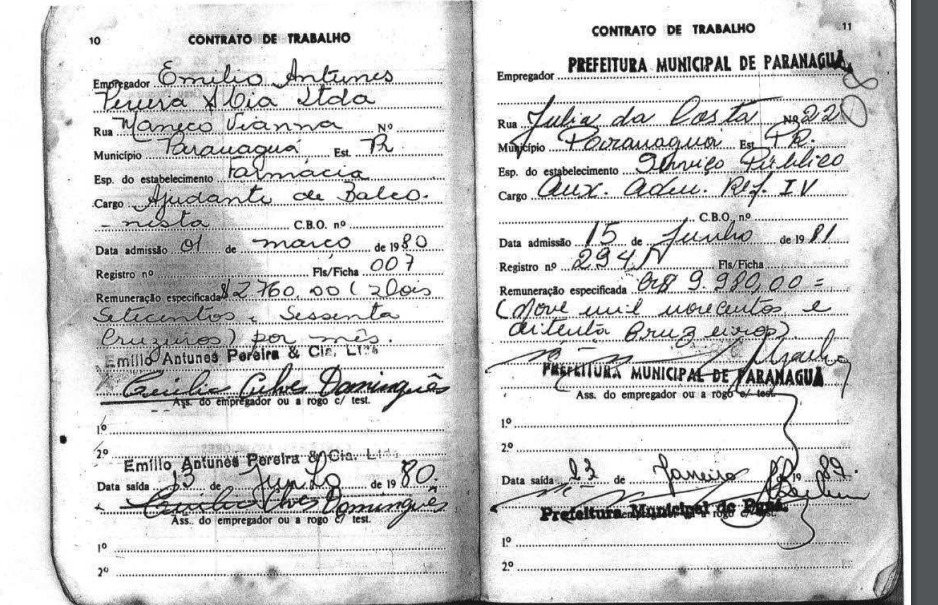 10
CONTRATO DE TRABALHO
Empregador Emilio Antunes
Pereira & Cia Ltda
Rua Maneco Vianna Nº
Município Paranaguá Est. PR
Esp. do estabelecimento Farmácia
Cargo Ajudante de Balco-
-nista C.B.O. nº
Data admissão 01 de março de 1980
Registro nº Fls/Ficha 007
Remuneração especificada $2.760,00 (dois
Setecentos e Sessenta
Cruzeiros) por mês.
Emilio Antunes Pereira & Cia. Ltda
Alves Domingues
Ass. do empregador ou a rogo c/ test.
1º
2º
Emilio Antunes Pereira & Cia. Ltda
Data saída 13 de de 1980.
Alves Domingues
Ass. do empregador ou a rogo c/ test.
1º
2º
CONTRATO DE TRABALHO
11
Empregador PREFEITURA MUNICIPAL DE PARANAGUÁ
Rua Julia da Costa Nº 22
Município Paranaguá Est. PR
Esp. do estabelecimento Serviço Público
Cargo Aux. Adm. Ref. IV
C.B.O. nº
Data admissão 15 de Junho de 1981
Registro nº 294 Fls/Ficha
Remuneração especificada Cr$ 9.980,00 =
(Nove mil novecentos e
oitenta Cruzeiros)
PREFEITURA MUNICIPAL DE PARANAGUÁ
Ass. do empregador ou a rogo c/ test.
1º
2º
Data saída 23 de Janeiro 1982.
Prefeitura Municipal de Pguá.
1º
2º